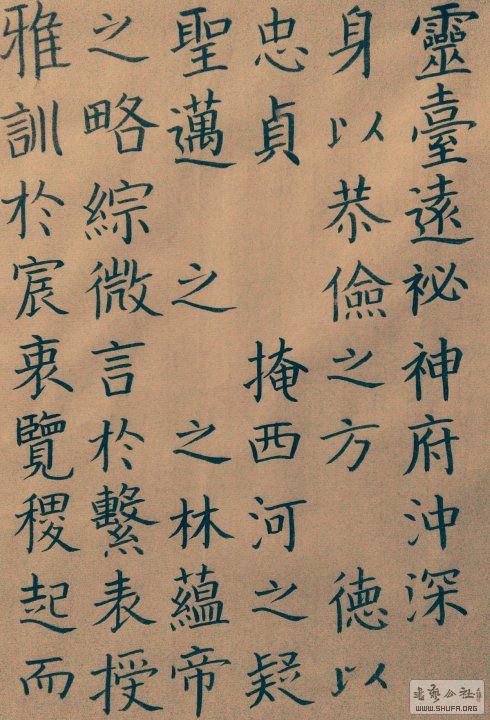 靈臺遠祕神府沖深
身以恭儉之方德以
忠貞掩西河之疑
聖邁之之林蘊帝
之略綜微言於繫表授
雅訓於宸衷覽稷起而
書藝公社
WWW.SHUFA.ORG